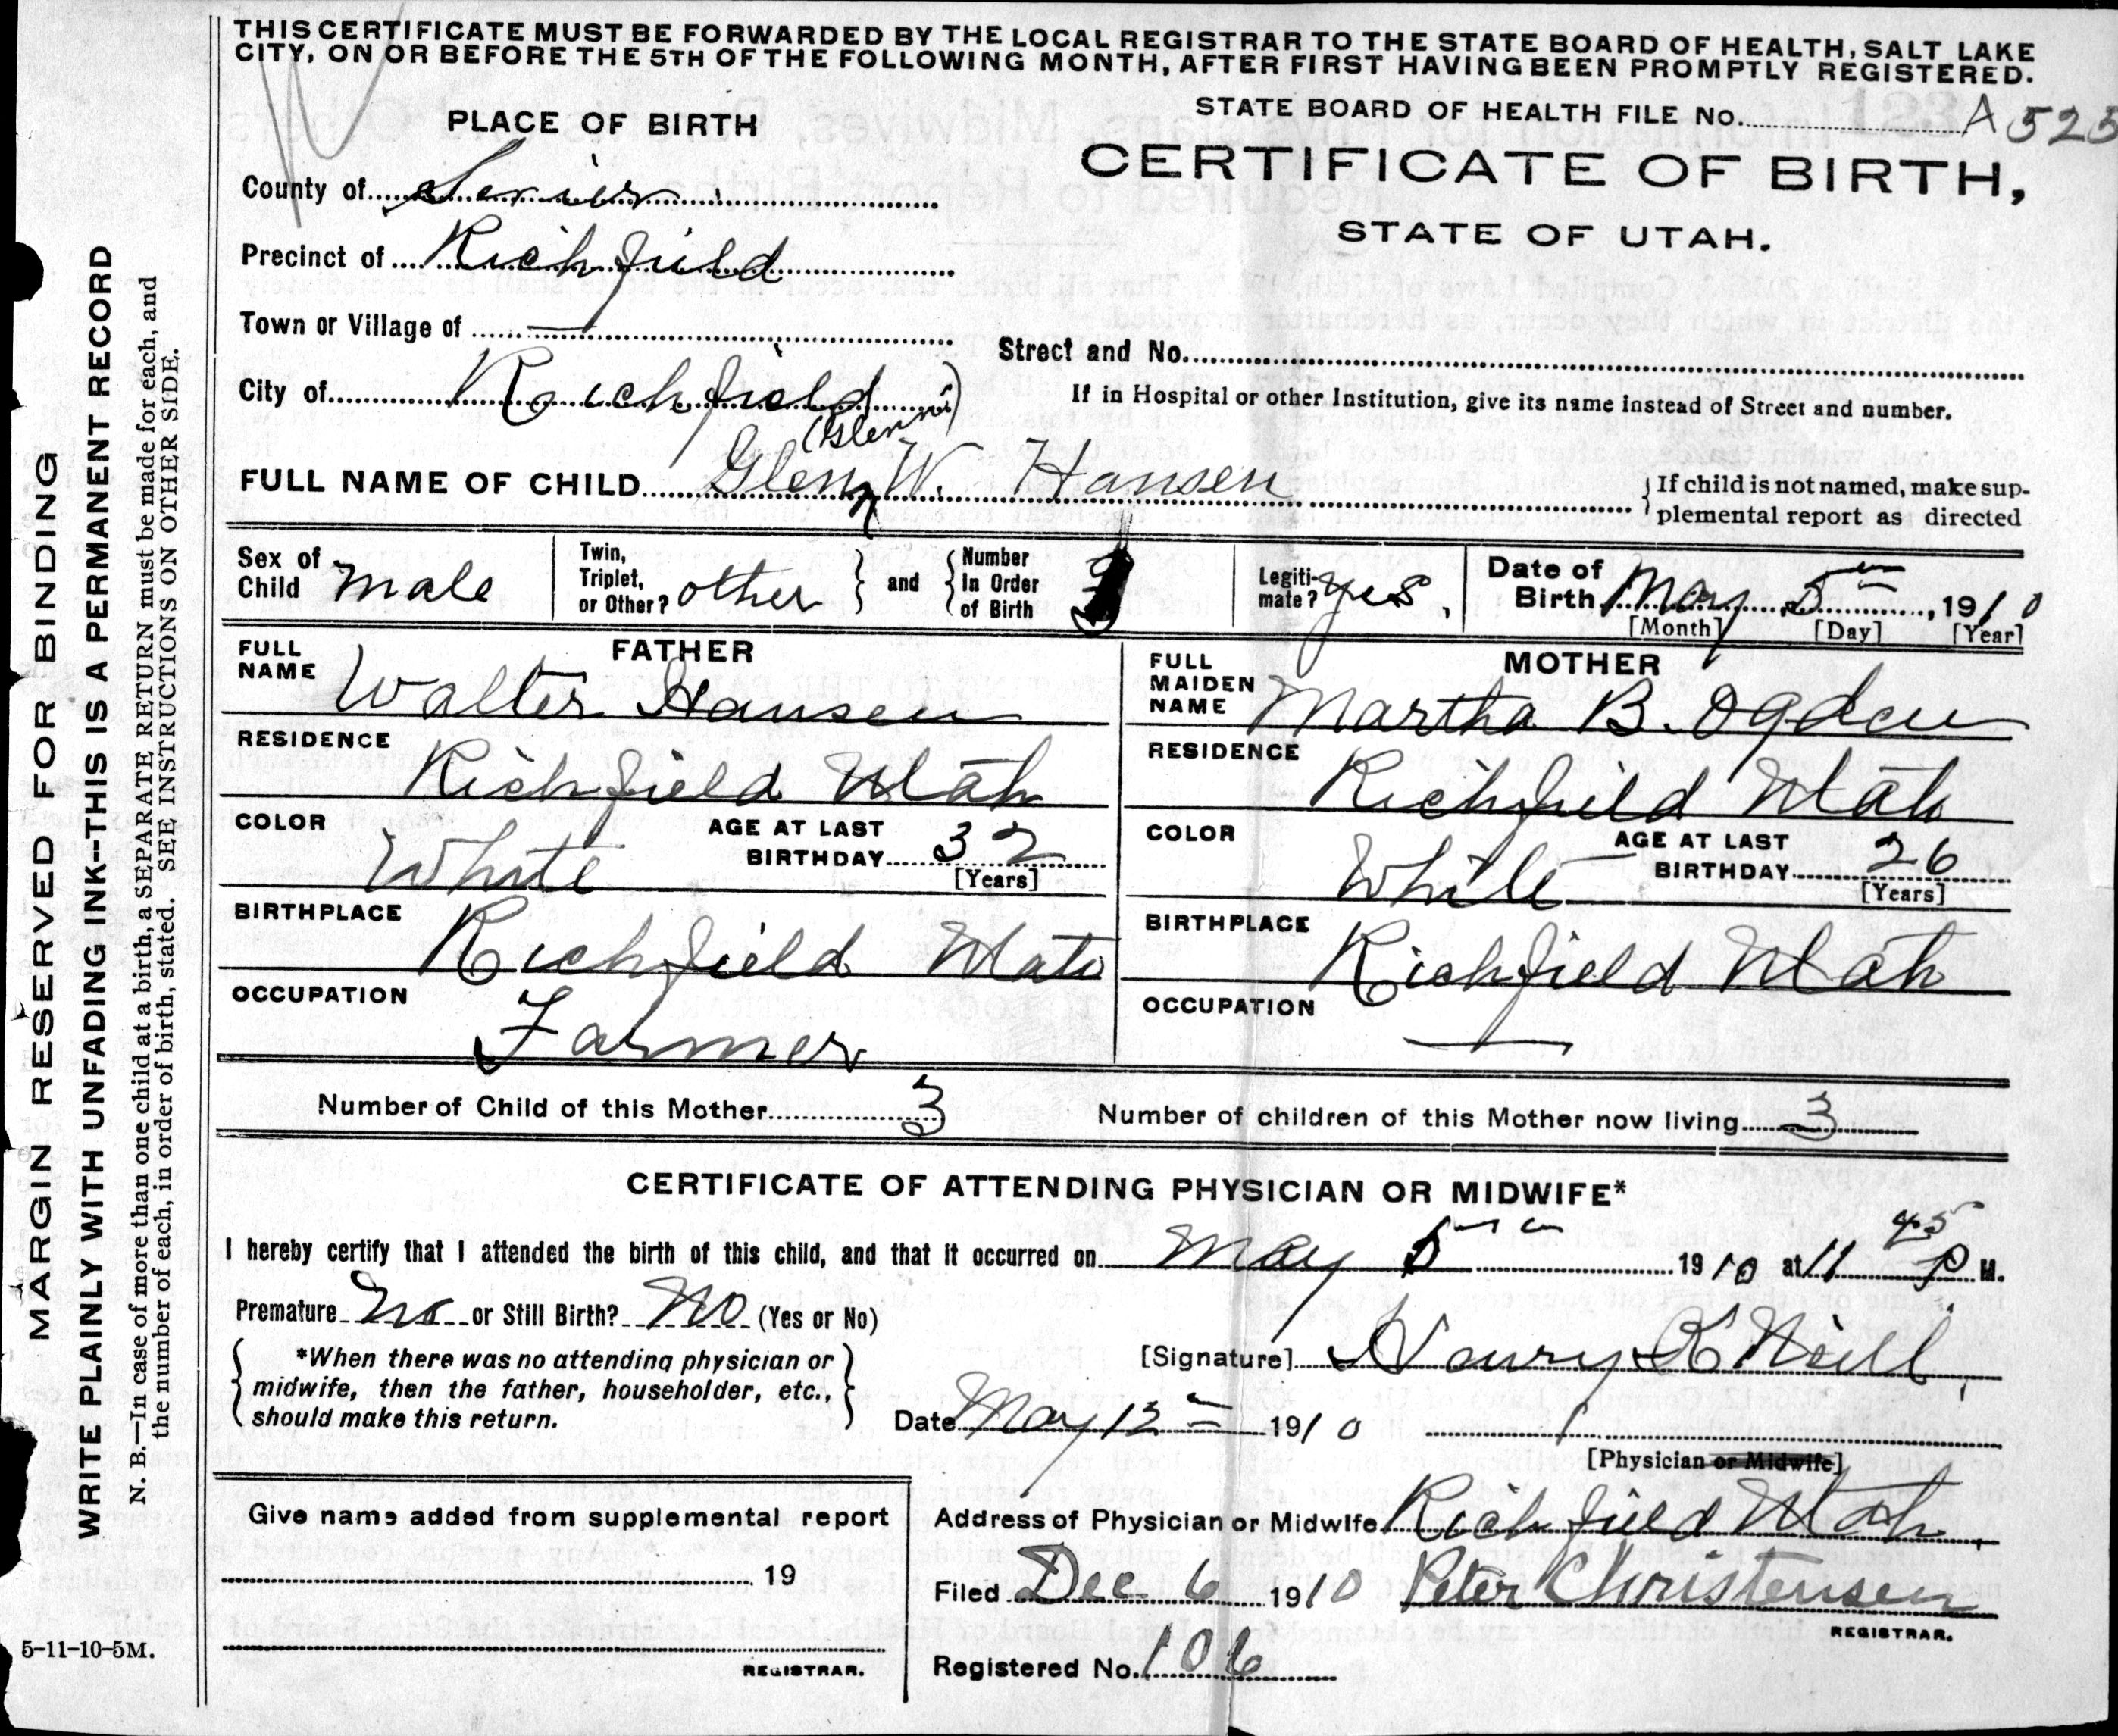 THIS CERTIFICATE MUST BE FORWARDED BY THE LOCAL REGISTRAR TO THE STATE BOARD OF HEALTH, SALT LAKE
CITY, ON OR BEFORE THE 5TH OF THE FOLLOWING MONTH, AFTER FIRST HAVING BEEN PROMPTLY REGISTERED.
STATE BOARD OF HEALTH FILE No. A 525
PLACE OF BIRTH
CERTIFICATE OF BIRTH,
STATE OF UTAH.
County of Sevier
Precinct of Richfield
Town or Village of —
Street and No.
City of Richfield
If in Hospital or other Institution, give its name instead of Street and number.
(Glenn)
FULL NAME OF CHILD Glenn W. Hansen
If child is not named, make sup-
plemental report as directed
Sex of Child male
Twin, Triplet, or Other? other
and Number In Order of Birth
Legiti-mate? yes,
Date of Birth May 5th, 1910
[Month] [Day] [Year]
FATHER
FULL NAME Walter Hansen
RESIDENCE Richfield Utah
COLOR White
AGE AT LAST BIRTHDAY 32
[Years]
BIRTHPLACE Richfield Utah
OCCUPATION Farmer
MOTHER
FULL MAIDEN NAME Martha B. Ogden
RESIDENCE Richfield Utah
COLOR White
AGE AT LAST BIRTHDAY 26
[Years]
BIRTHPLACE Richfield Utah
OCCUPATION —
Number of Child of this Mother 3
Number of children of this Mother now living 3
CERTIFICATE OF ATTENDING PHYSICIAN OR MIDWIFE*
I hereby certify that I attended the birth of this child, and that it occurred on May 5th 1910 at 11 45 P M.
Premature No or Still Birth? No (Yes or No)
*When there was no attending physician or
midwife, then the father, householder, etc.,
should make this return.
[Signature] Henry K Neill
Date May 12 1910
[Physician or Midwife]
Give name added from supplemental report
19
REGISTRAR.
Address of Physician or Midwife Richfield Utah
Filed Dec 6 1910 Peter Christensen
REGISTRAR.
Registered No. 106
5-11-10-5M.
MARGIN RESERVED FOR BINDING
WRITE PLAINLY WITH UNFADING INK--THIS IS A PERMANENT RECORD
N. B.—In case of more than one child at a birth, a SEPARATE RETURN must be made for each, and
the number of each, in order of birth, stated. SEE INSTRUCTIONS ON OTHER SIDE.